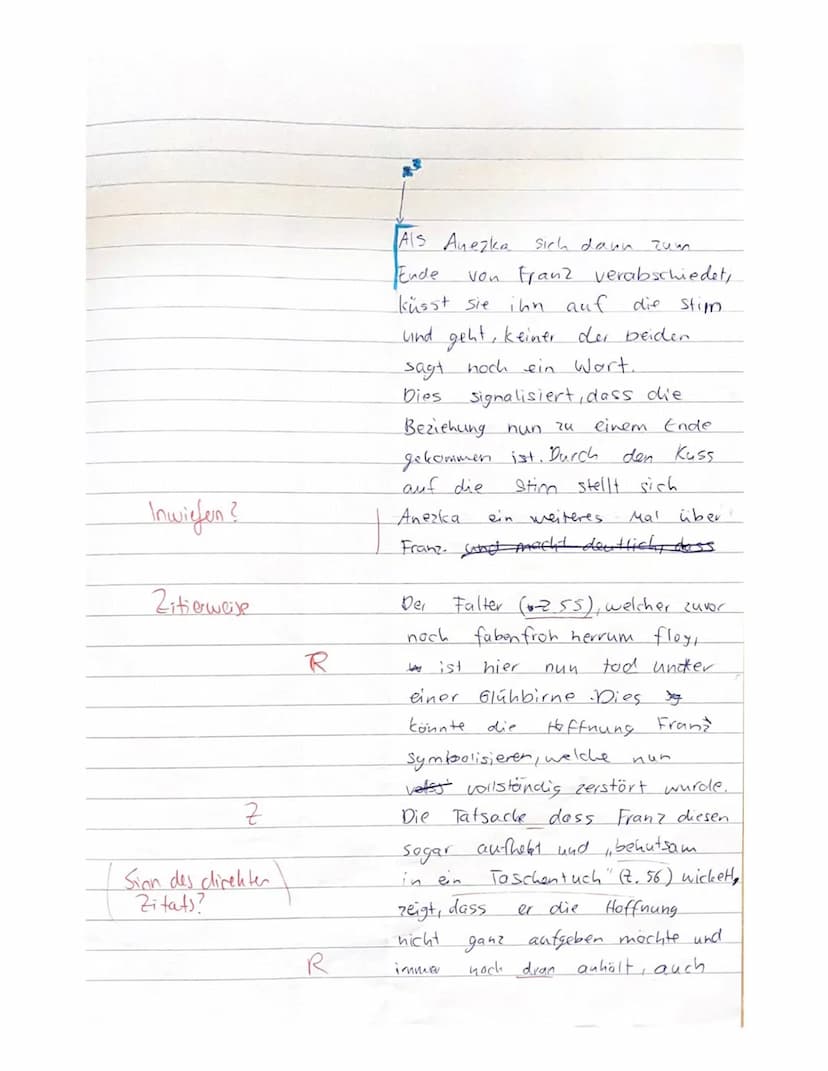 x3
Als Anezka sich dann zum
Ende von Franz verabschiedet,
küsst sie ihn auf die Stirn
und geht, keiner der beiden
sagt noch ein Wort.
Dies signalisiert, dass die
Beziehung nun zu einem Ende
gekommen ist. Durch den Kuss
auf die Stirn stellt sich
Inwiefern? Anezka ein weiteres Mal über
Franz. und macht deutlich, dass
Zitierweise Der Falter (Z 55), welcher zuvor
noch fabenfroh herrum flog,
R ist hier nun tod unter
einer Glühbirne. Dies
könnte die Hoffnung Franz'
symbolisieren, welche nun
vollständig zerstört wurde.
Z Die Tatsache dass Franz diesen
sogar aufhebt und „behutsam
Sinn des direkten in ein Taschentuch" (Z. 56) wickelt,
Zitats? zeigt, dass er die Hoffnung
nicht ganz aufgeben möchte und
R immer noch dran anhält, auch